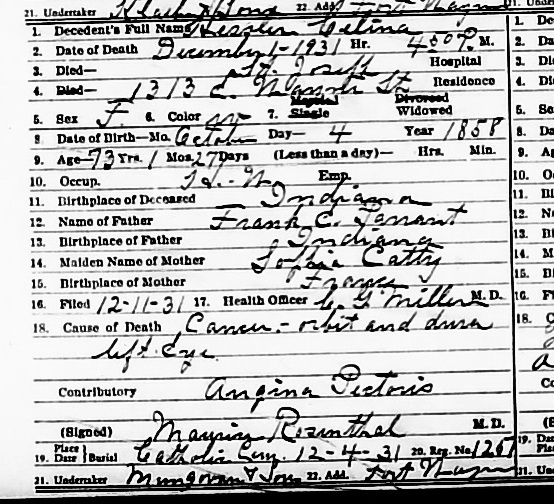 21. Undertaker & Sons 22. Add. Fort Wayne
1. Decedent's Full Name Kessler Celina
2. Date of Death December 1-1931 Hr. 4:50 P. M.
3. Died— St. Joseph Hospital
4. Died— 1313 E. St Residence
5. Sex F 6. Color W 7. Married Single Divorced Widowed
8 Date of Birth—Mo. October Day— 4 Year 1858
9. Age—73 Yrs. 1 Mos. 27 Days (Less than a day)— Hrs. Min.
10. Occup. H.-W Emp.
11. Birthplace of Deceased — Indiana
12. Name of Father Frank C.
13. Birthplace of Father Indiana
14. Maiden Name of Mother Sophia
15. Birthplace of Mother France
16. Filed 12-11-31 17. Health Officer Miller M. D.
18. Cause of Death Cancer - orbit and dura
left Eye
Contributory Angina Pectoris
(Signed) Maurice Rosenthal M. D.
19. Place Date Burial Catholic Cem. 12-4-31 20. Reg. No. 1267
21. Undertaker Mungovan & Sons 22. Add. Fort Wayne